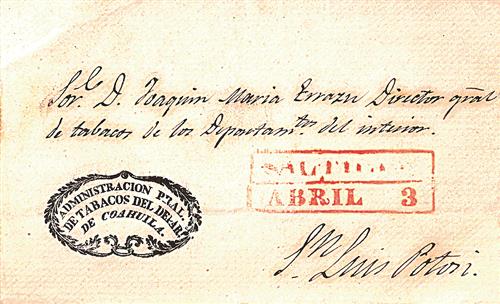 Sor. D. Joaquin Maria Errazu Director gral
de tabacos de los Departamtos del interior.
ADMINISTRACION PRAL.
DE TABACOS DEL DEPAR.
DE COAHUILA.
SALTILLO
ABRIL 3
Sn Luis Potosi